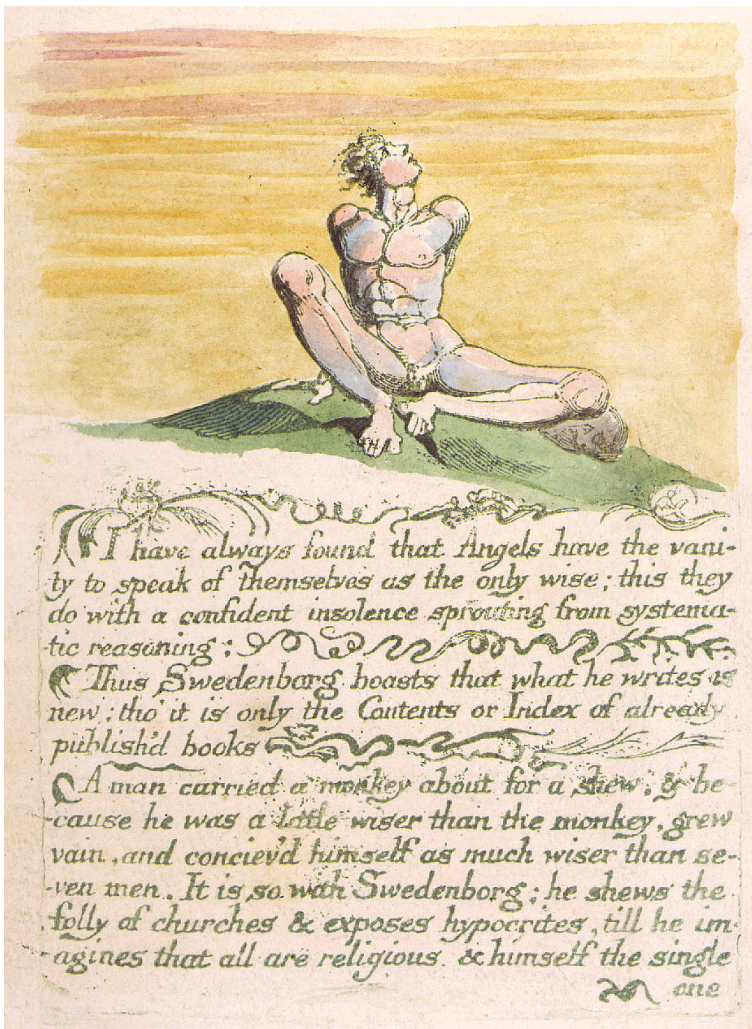 I have always found that Angels have the vani-
ty to speak of themselves as the only wise; this they
do with a confident insolence sprouting from systema-
-tic reasoning;
Thus Swedenborg boasts that what he writes is
new; tho' it is only the Contents or Index of already
publish'd books
A man carried a monkey about for a shew, & be-
-cause he was a little wiser than the monkey, grew
vain, and conciev'd himself as much wiser than se-
-ven men. It is so with Swedenborg; he shews the
folly of churches & exposes hypocrites, till he im-
-agines that all are religious. & himself the single
one